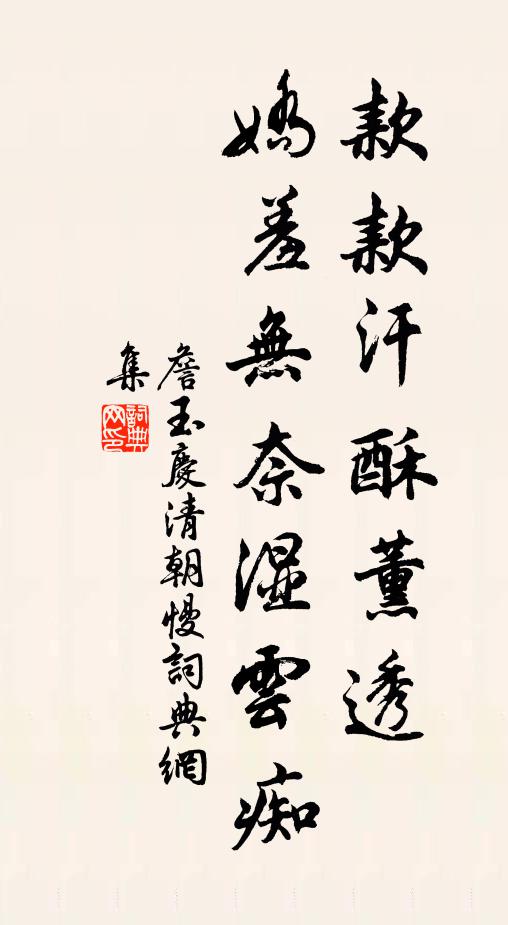 款款汗酥薰透
嬌羞無奈湿雲痴
詹玉慶清朝慢詞典網
集
詞典网印